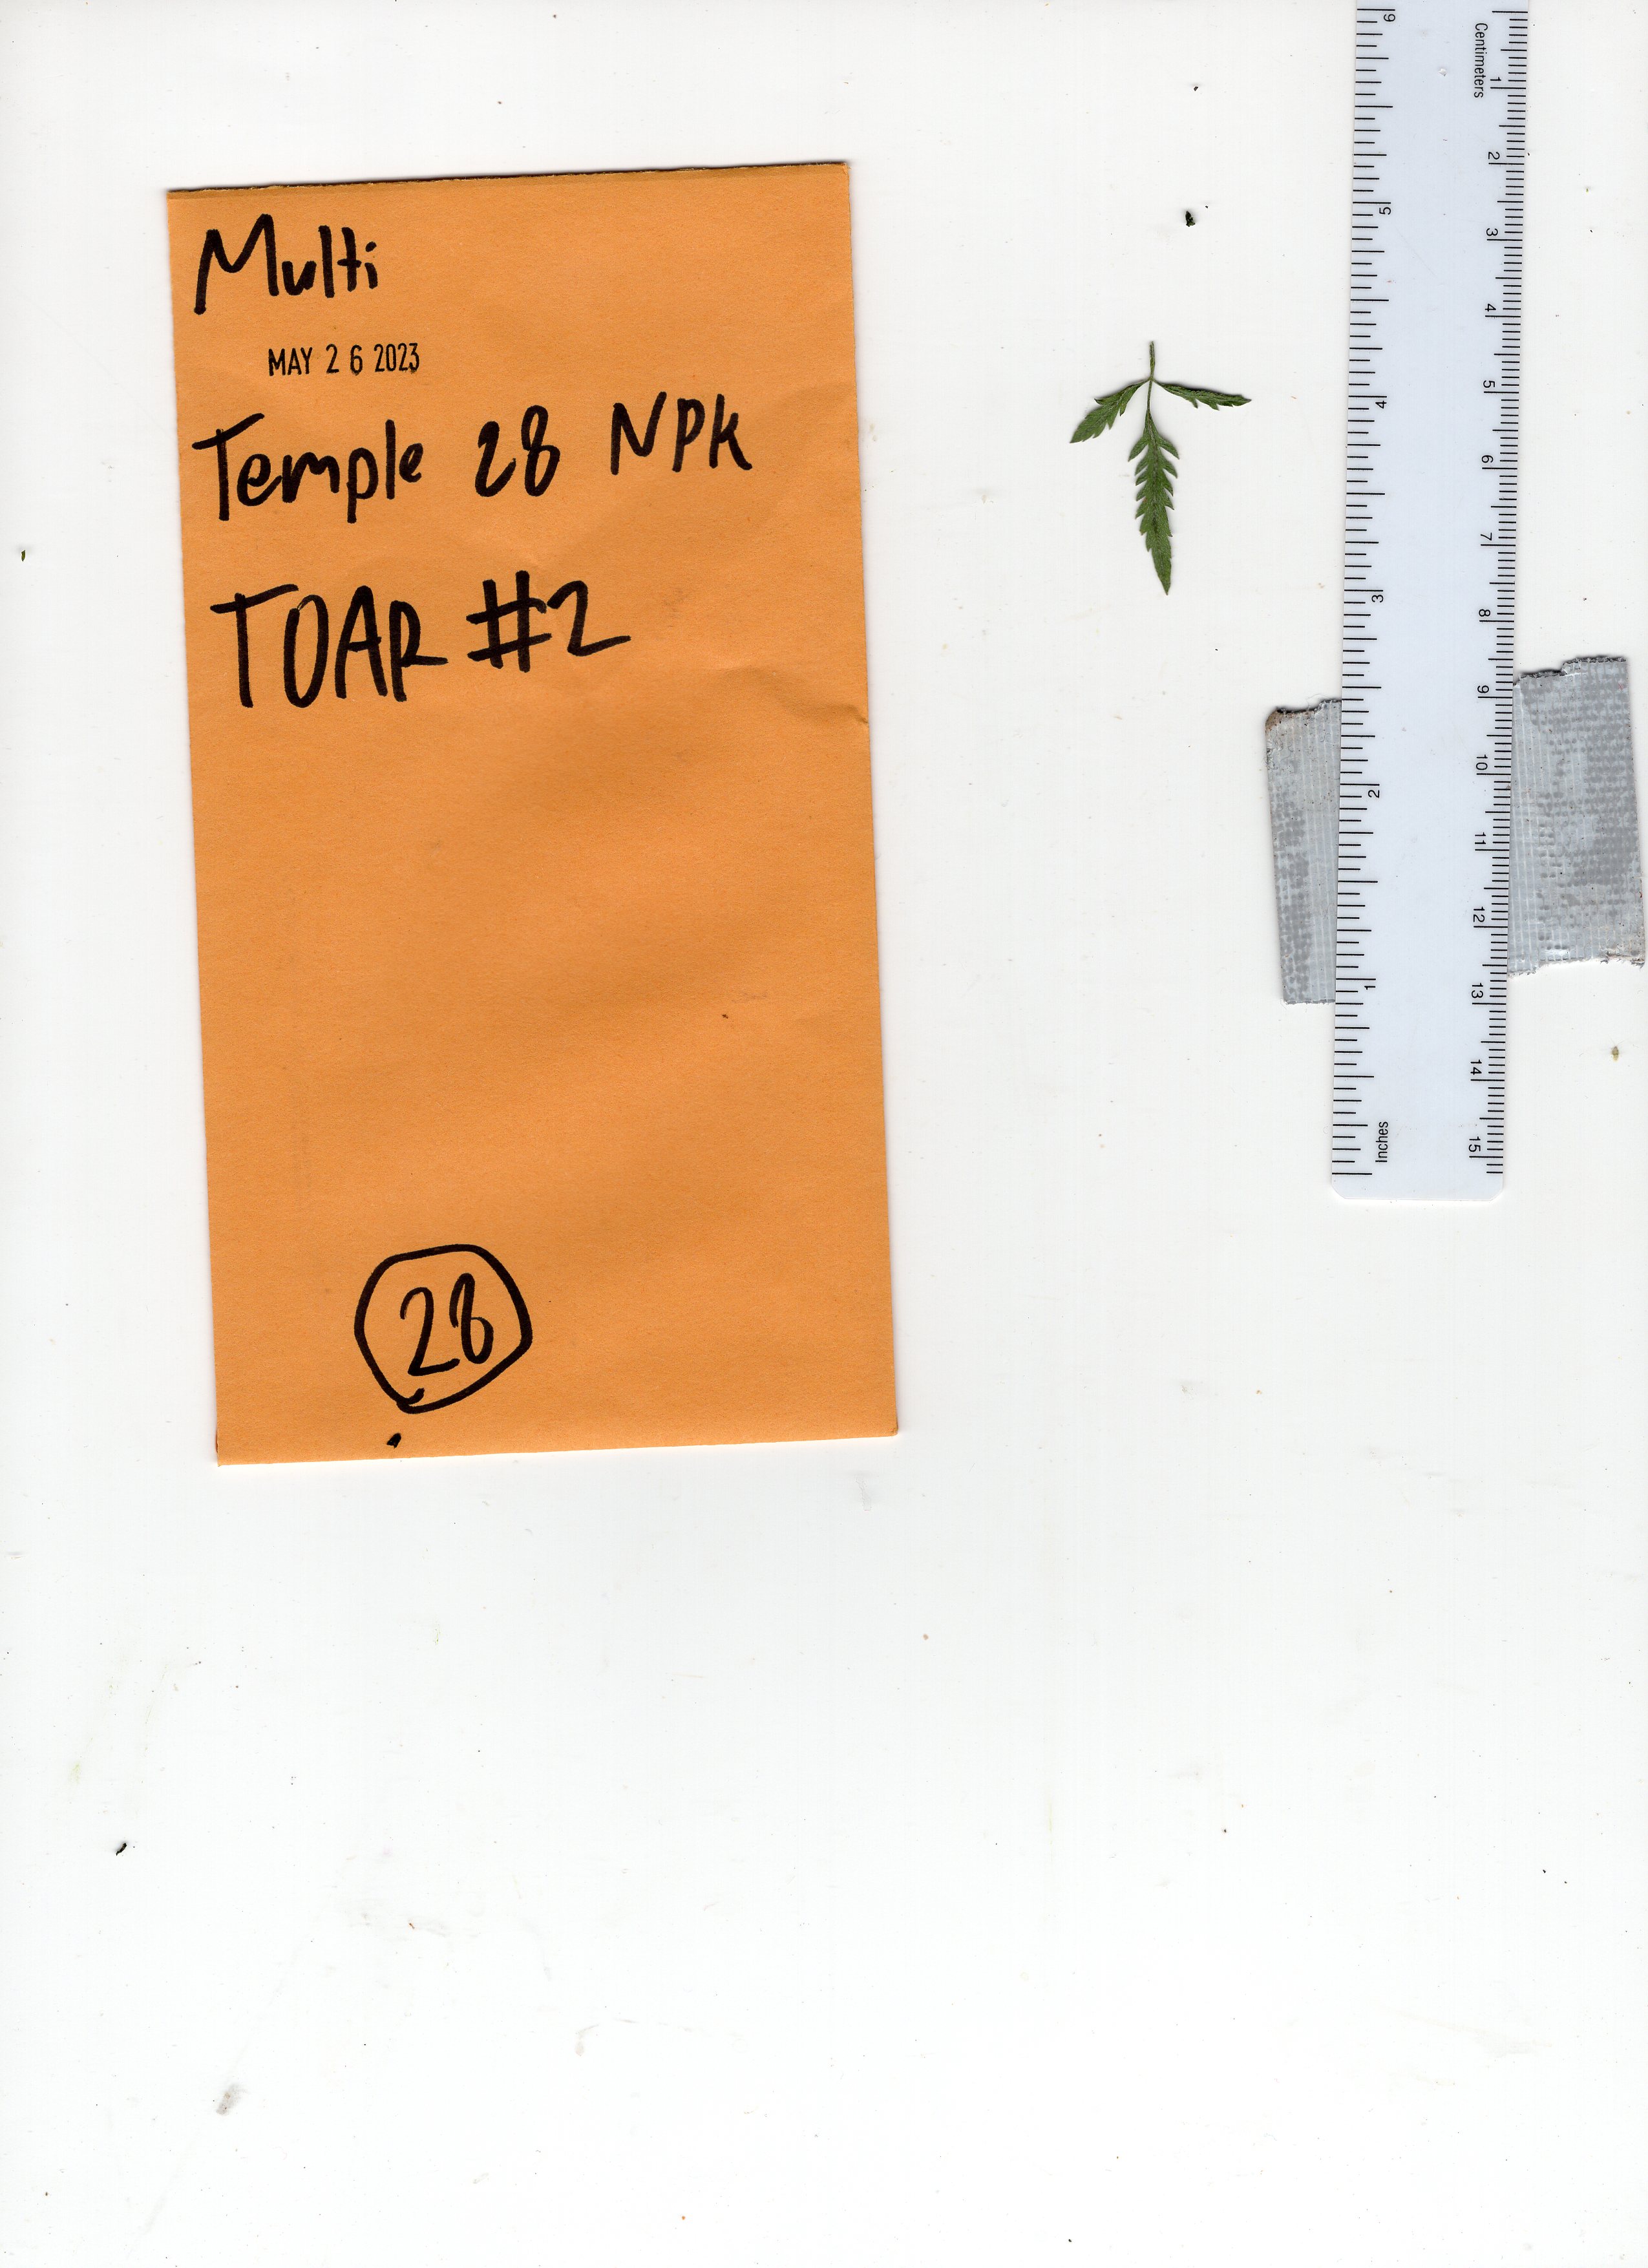 Multi
MAY 26 2023
Temple 28 NPK
TOAR #2
28
Centimeters
1
2
3
4
5
6
7
8
9
10
11
12
13
14
15
6
5
4
3
2
1
Inches